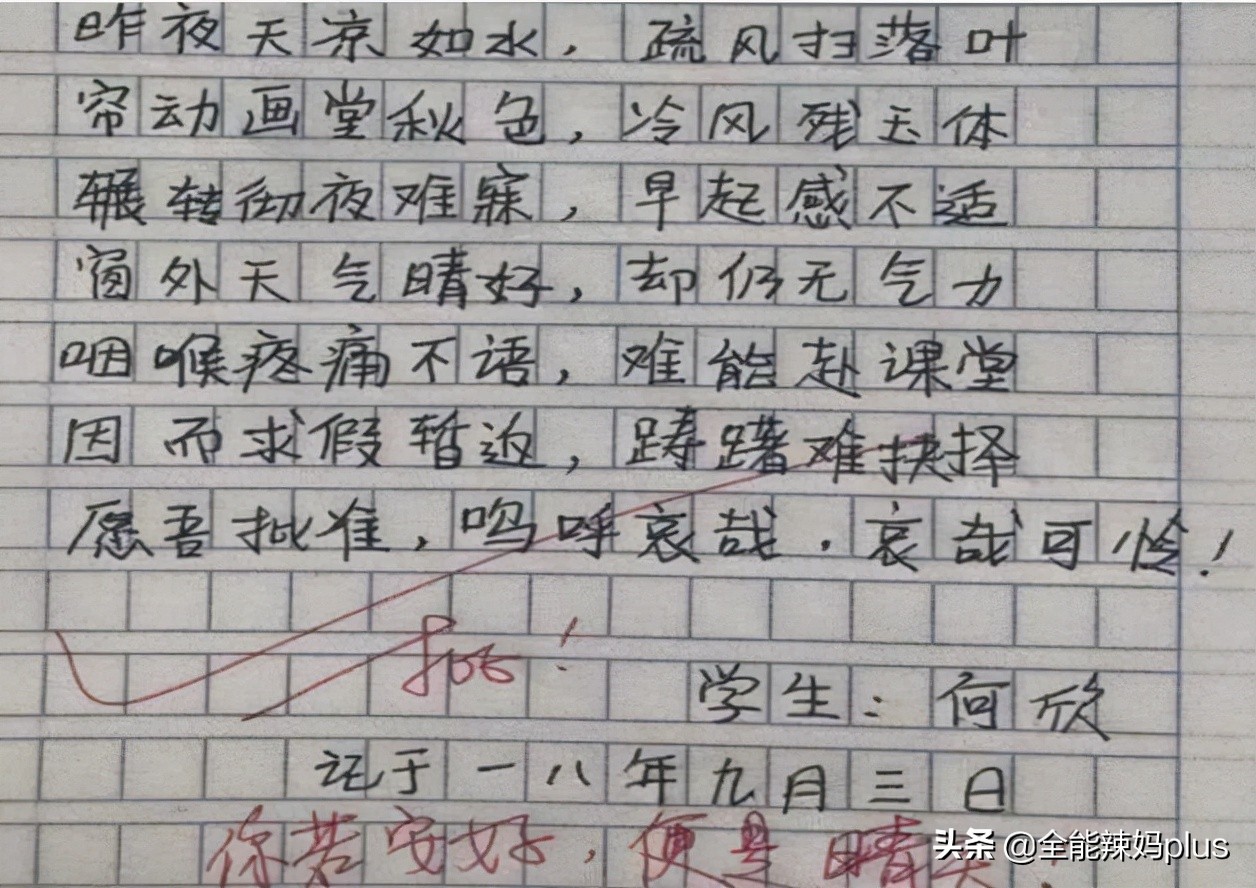 昨夜天凉如水，疏风扫落叶
帘动画堂秋色，冷风残玉体
辗转彻夜难寐，早起感不适
窗外天气晴好，却仍无气力
咽喉疼痛不语，难能赴课堂
因而求假暂返，踌躇难抉择
愿吾批准，呜呼哀哉．哀哉可怜！
批！
学生：何欣
记于一八年九月三日
你若安好，便是晴天
头条 @全能辣妈plus